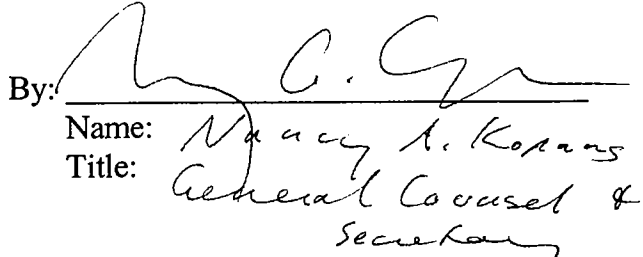 By:
Name: Nancy A. Kopans
Title: General Counsel &
Secretary